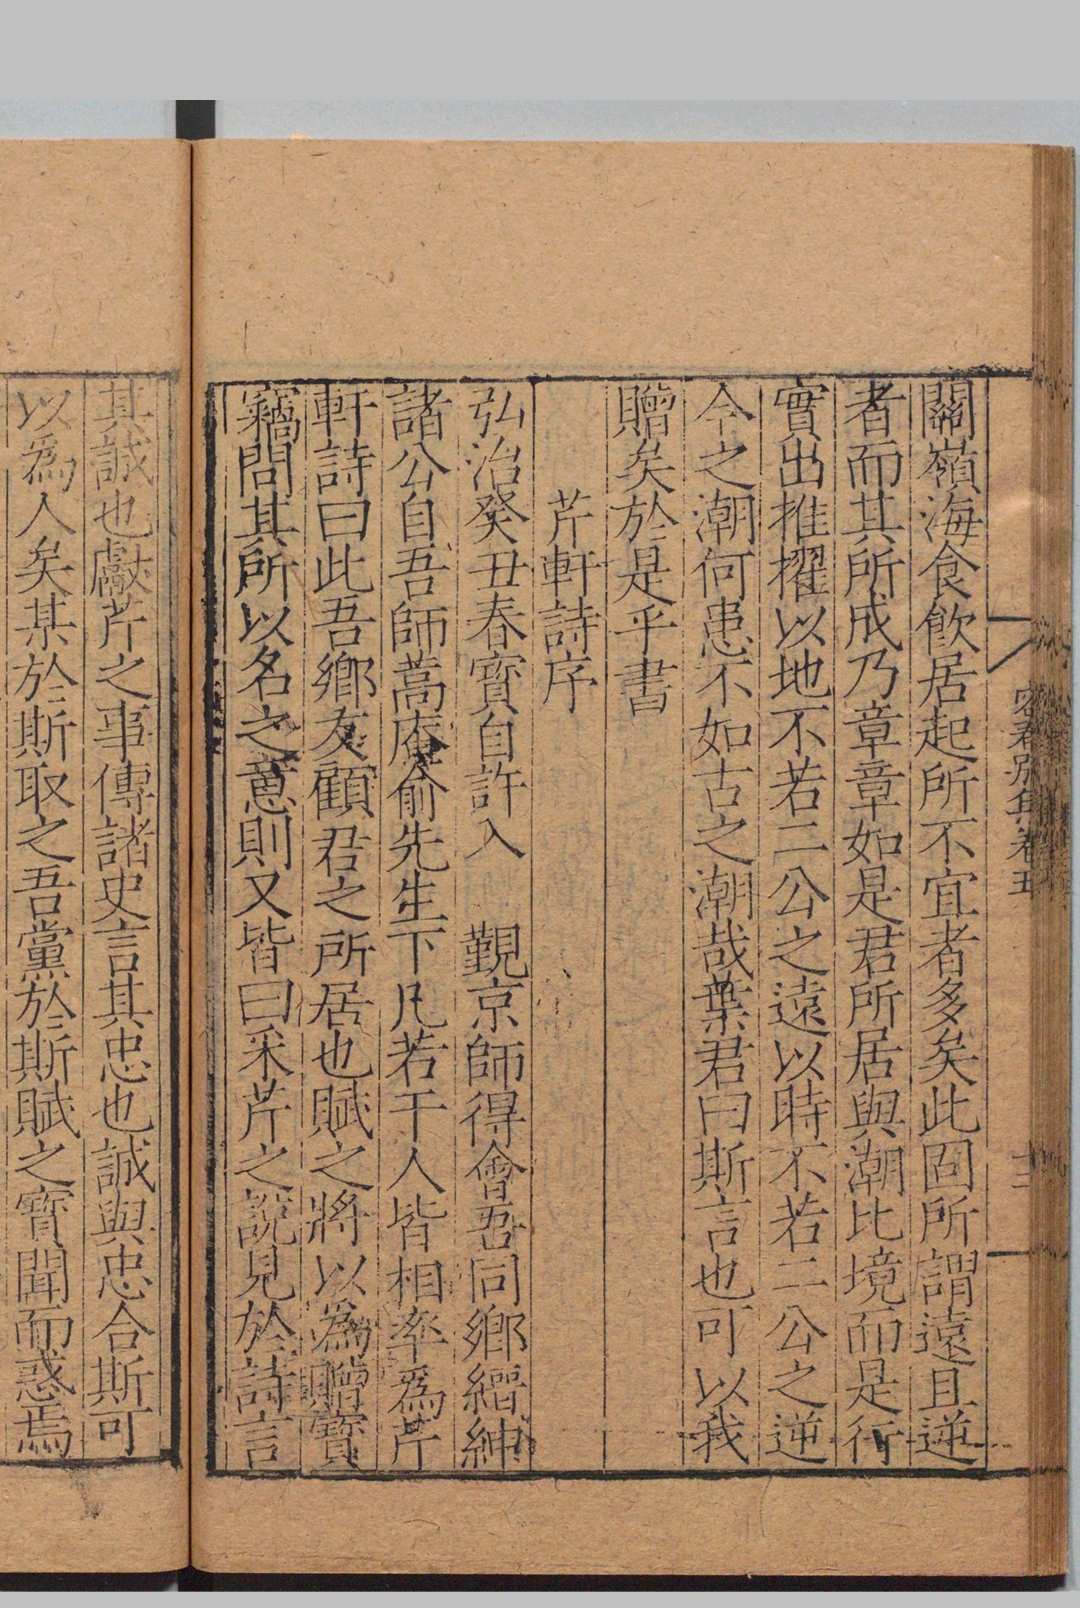 關嶺海食飲居起所不宜者多矣此固所謂遠且逆
者而其所成乃章章如是君所居與潮比境而是行
實出推擢以地不若二公之遠以時不若二公之逆
今之潮何患不如古之潮哉葉君曰斯言也可以我
贈矣於是乎書
芹軒詩序
弘治癸丑春寳自許入 覲京師得會吾同鄉縉紳
諸公自吾師蒿庵俞先生下凡若干人皆相率為芹
軒詩曰此吾鄉友顧君之所居也賦之將以為贈寳
竊問其所以名之意則又皆曰采芹之說見於詩言
其誠也獻芹之事傳諸史言其忠也誠與忠合斯可
以為人矣某於斯取之吾黨於斯賦之寳聞而惑焉